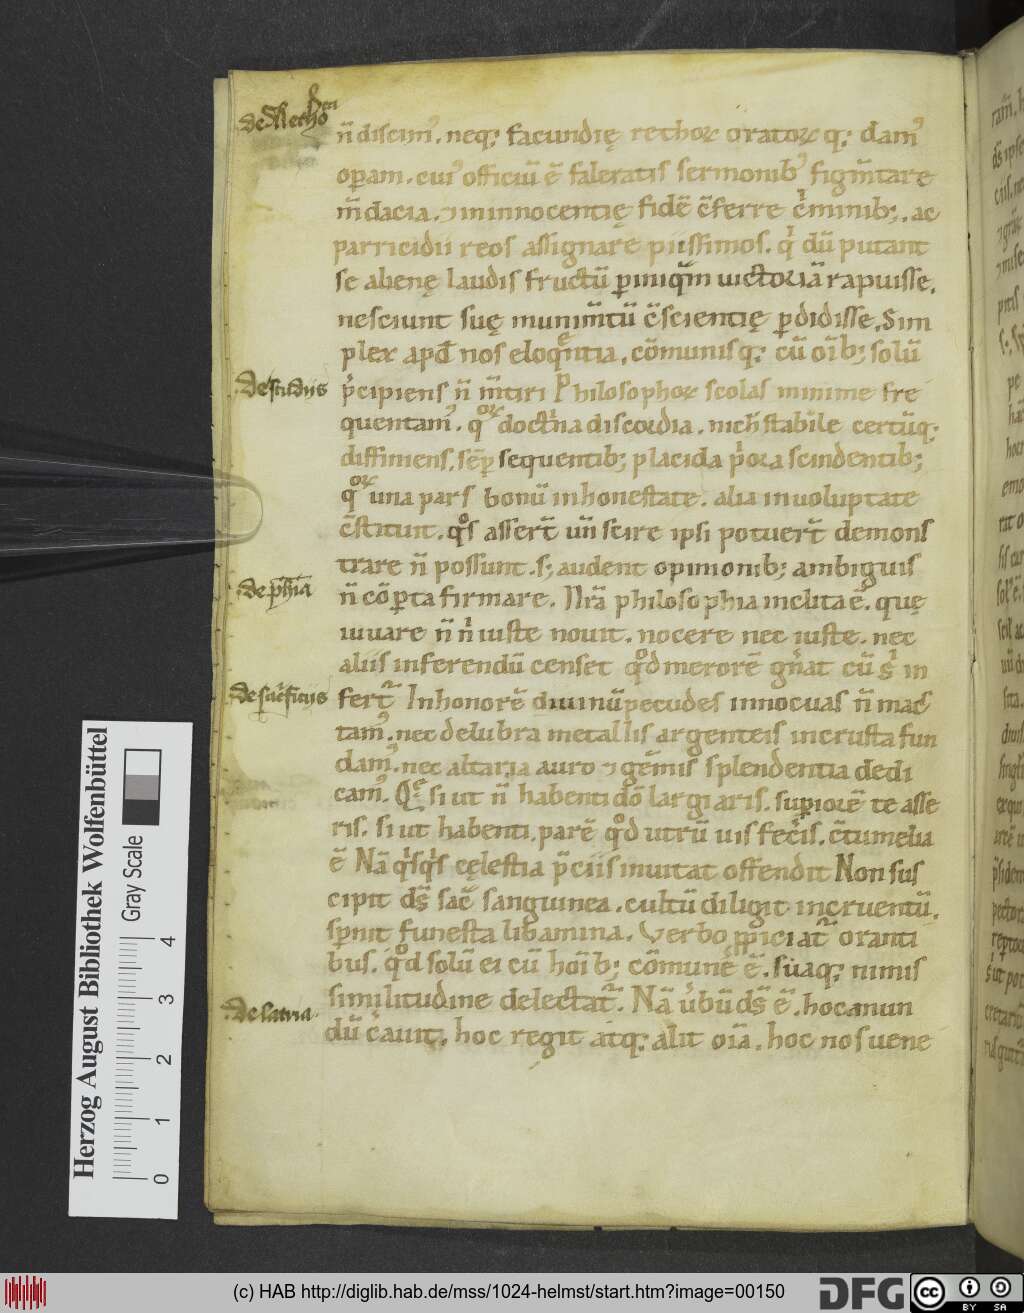 de Rethorica
n̄ discim᷒. neq; facundię rethoꝝ oratoꝝ q; dam᷒
oꝑam. cui᷒ officiū ē faleratis sermonib᷒ figm̄tare
m̄dacia. ⁊ in innocentię fidē c̄ferre c̍minib;. ac
parricidii reos assignare piissimos. q̍ dū putant
se alienę laudis fructū ꝑ iniq̄m uictoriā rapuisse.
nesciunt suę munim̄tū c̄scientię ꝑdidisse. Sim
plex apđ nos eloq̄ntia. cōmunis q; cū oīb; solū
de studiis
p̍cipiens n̄ m̄tiri Philosophoꝝ scolas minime fre
quentam᷒. qꝝ doct̍na discordia. nich̄ stabile certūq;
diffiniens. sēꝑ sequentib; placida p̍ora scindentib;
qꝝ una pars bonū in honestate. alia in uoluptate
c̄stituit. qͦs assert̄ uñ scire ipsi potuert̄ demons
trare n̄ possunt. s; audent opinionib; ambiguis
de phīa
n̄ cōꝑta firmare. Nr̄a philosophia inclita ē. quę
iuuare n̄ n̍ iuste nouit. nocere nec iuste. nec
aliis inferendū censet qͦd merorē gn̍at cū s̍ in
de sacrificiis
fert᷑ In honorē diuinū pecudes innocuas n̄ mac
tam᷒. nec delubra metallis argenteis incrusta fun
dam᷒. nec altaria auro ⁊ gēmis splendentia dedi
cam᷒. Qę si ut n̄ habenti dō largiaris. suꝑiorē te asse
ris. si ut habenti. parē qͦd utrū uis fec̍is. c̄tumelia
ē Nā q̍sq̍s cęlestia p̄ciis inuitat offendit Non sus
cipit ds̄ sac̄ sanguinea. cultū diligit incruentū.
sꝑnit funesta libamina. Verbo ꝓpiciat᷑ oranti
bus. qͦd solū ei cū hoīb; cōmune ē. suaq; nimis
similitudine delectat᷑. Nā u̍bū ds̄ ē. hoc mun
de latria
dū c̍auit. hoc regit atq; alit oīa. hoc nos uene
Herzog August Bibliothek Wolfenbüttel
Gray Scale
0 1 2 3 4
(c) HAB http://diglib.hab.de/mss/1024-helmst/start.htm?image=00150
DFG
cc BY SA